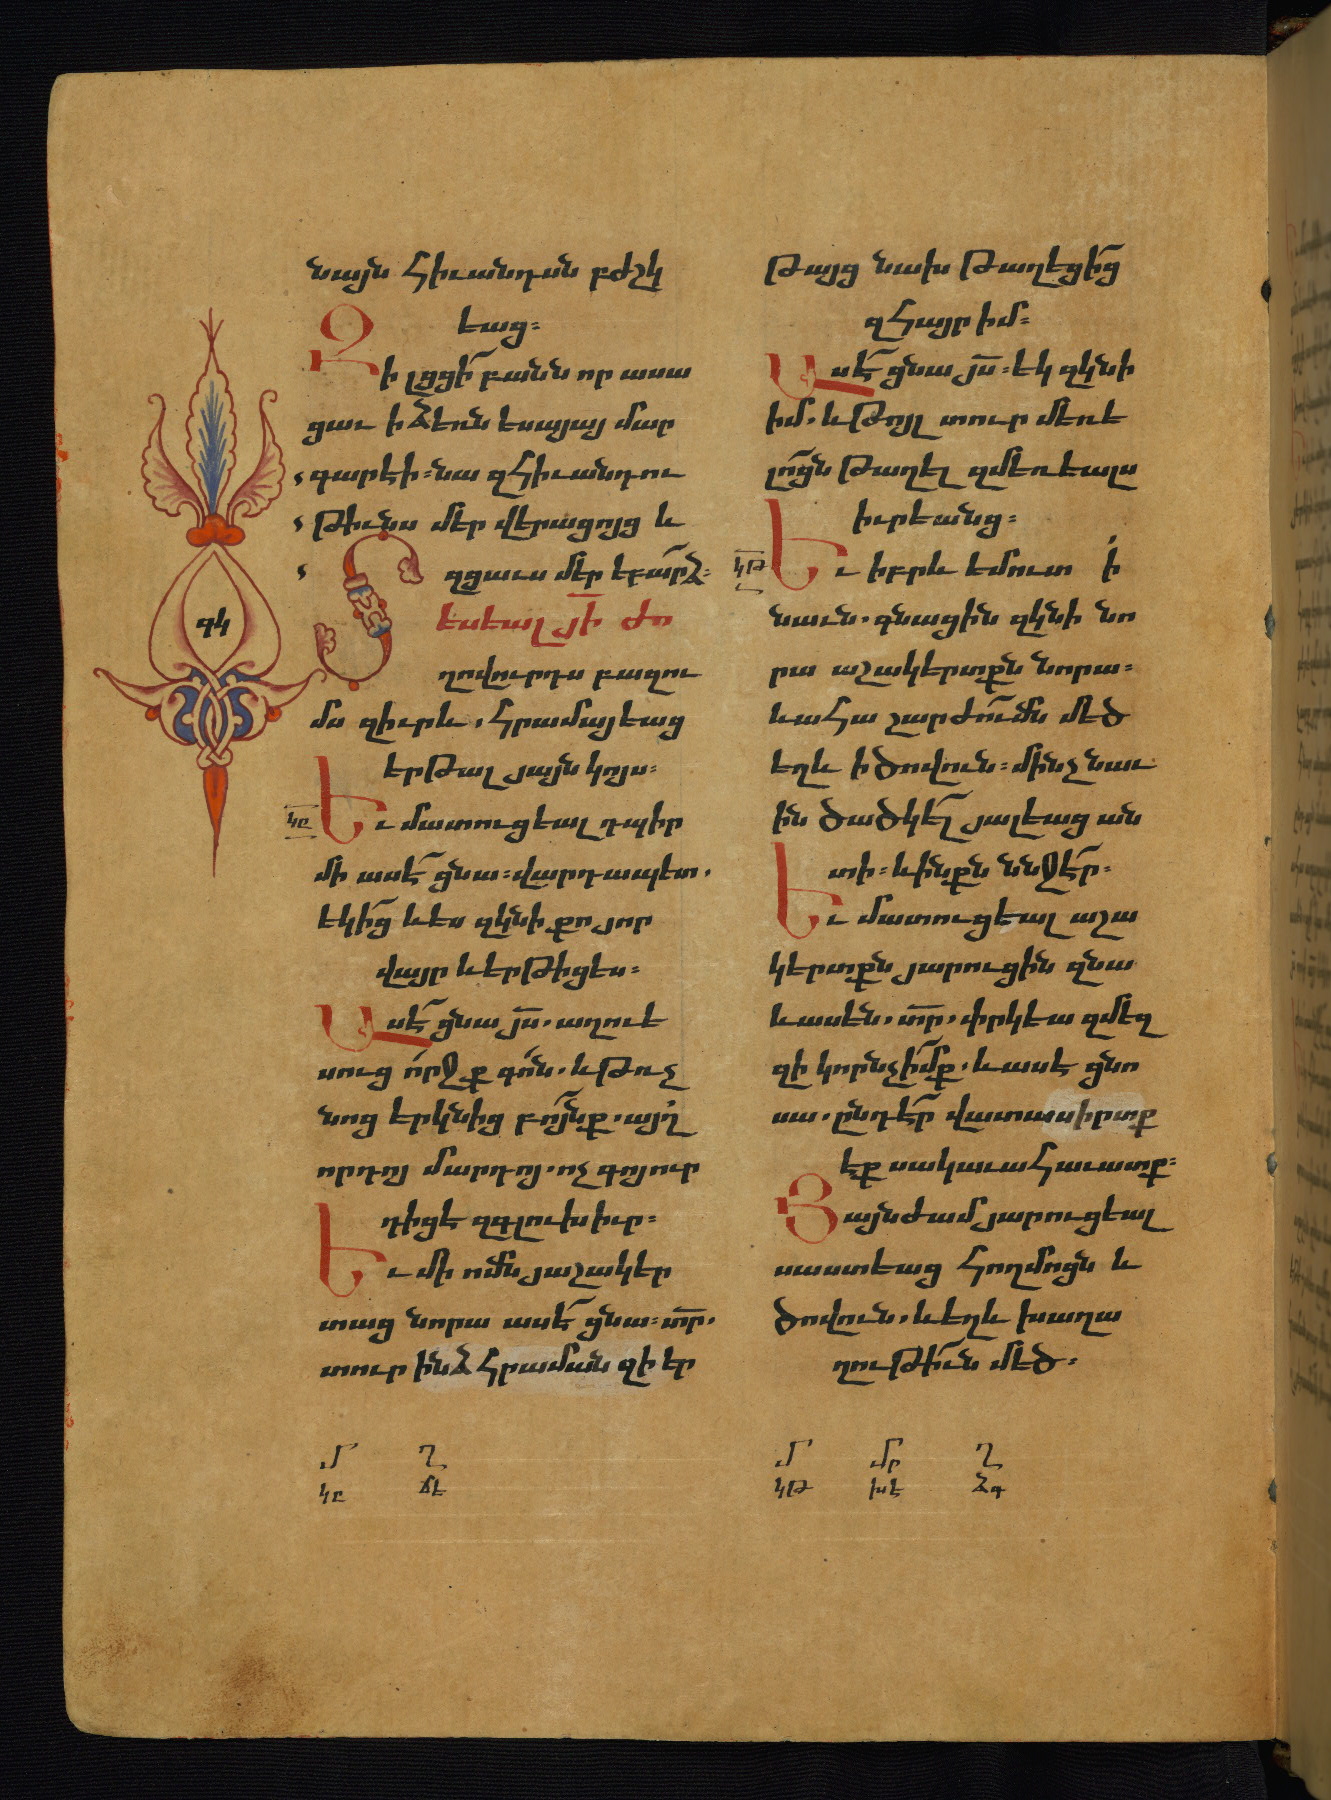 նայն հիւանդսն բժշկ
եաց։
Զի լցցի՜ բանն որ ասա
ցաւ ի ձեռն եսայայ մար
գարէի։ նա զհիւանդու
թիւնս մեր վերացոյց և
զցաւս մեր եբա՜րձ։
Տեսեալ յ՜ի ժո
ղովուրդս բազու
մս զիւրև, հրամայեաց
երթալ յայն կոյս։
Եւ մատուցեալ դպիր
մի ասէ՜ ցնա։ վարդապետ.
եկի՜ց ևես զկնի քո յոր
վայր և երթիցես։
Ասէ՜ ցնա յ՜ս. աղուե
սուց ո՜րջք գո՜ն. և թռչ
նոց երկնից բո՜յնք. այ՜ղ
որդոյ մարդոյ. ոչ գոյ ուր
դիցէ զգլուխ իւր։
Եւ մի ոմն յաշակեր
տաց նորա ասէ՜ ցնա։ տ՜ր.
տուր ինձ հրաման զի եր
գկ
կը
Մ Ղ
կը ճե
թայց նախ թաղեցի՜ց
զհայր իմ։
Ասէ՜ ցնա յ՜ս։ եկ զկնի
իմ. և թոյլ տուր մեռե
լո՜ցն թաղել զմեռեալս
իւրեանց։
Եւ իբրև եմուտ ի՜
նաւն. գնացին զկնի նո
րա աշակերտքն նորա։
ևահա շարժո՜ւմն մեծ
եղև ի ծովուն։ մինչ նաւ
ին ծածկե՜լ յալեաց ան
տի։ և ինքն ննջէ՜ր։
Եւ մատուցեալ աշա
կերտքն յարուցին զնա
և ասեն. տ՜ր. փրկեա զմեզ
զի կորնչի՜մք. և ասէ ցնո
սա. ընդէ՜ր վատասիրտք
էք սակաւահաւատք։
Յայնժամ յարուցեալ
սաստեաց հողմոցն և
ծովուն. և եղև խաղա
ղութի՜ւն մեծ։
կթ
Մ Մր Ղ
կթ խէ ձգ